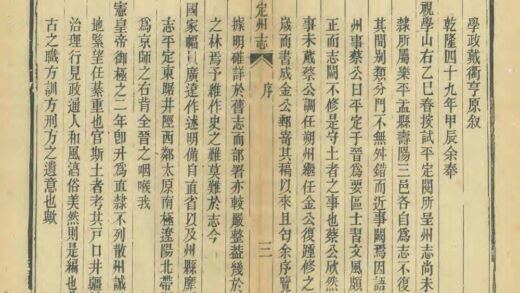 學政戴衢亨原叙
乾隆四十九年甲辰余奉
視學山右乙巳春按試平定閱所呈州志尚未
隸所屬樂平盂縣壽陽三邑各自為志不復
其間別類分門不無舛錯而近事闕焉因語
州事蔡公曰平定于晉為要區士習文風頗
正而志闕不修是守土者之事也蔡公欣然
事未蕆蔡公調任朔州繼任金公復踵修之
歲而書成金公郵寄其稿以來且匄余序覽
據明確詳於舊志而部署亦較嚴整葢幾於
之林焉予維作史之難莫難於志今
國家幅員廣遠作述明備自直省以及州縣靡
志平定東踞井陘西鄰太原南極遼陽北帶
為京師之右肯全晉之咽喉我
憲皇帝御極之二年卽升為直隸不列散州誠
地緊望任綦重也官斯土者考其戸口井疆
治理行見政通人和風謟俗美然則是編也
古之職方訓方形方之遺意也歟
定州志
序
三